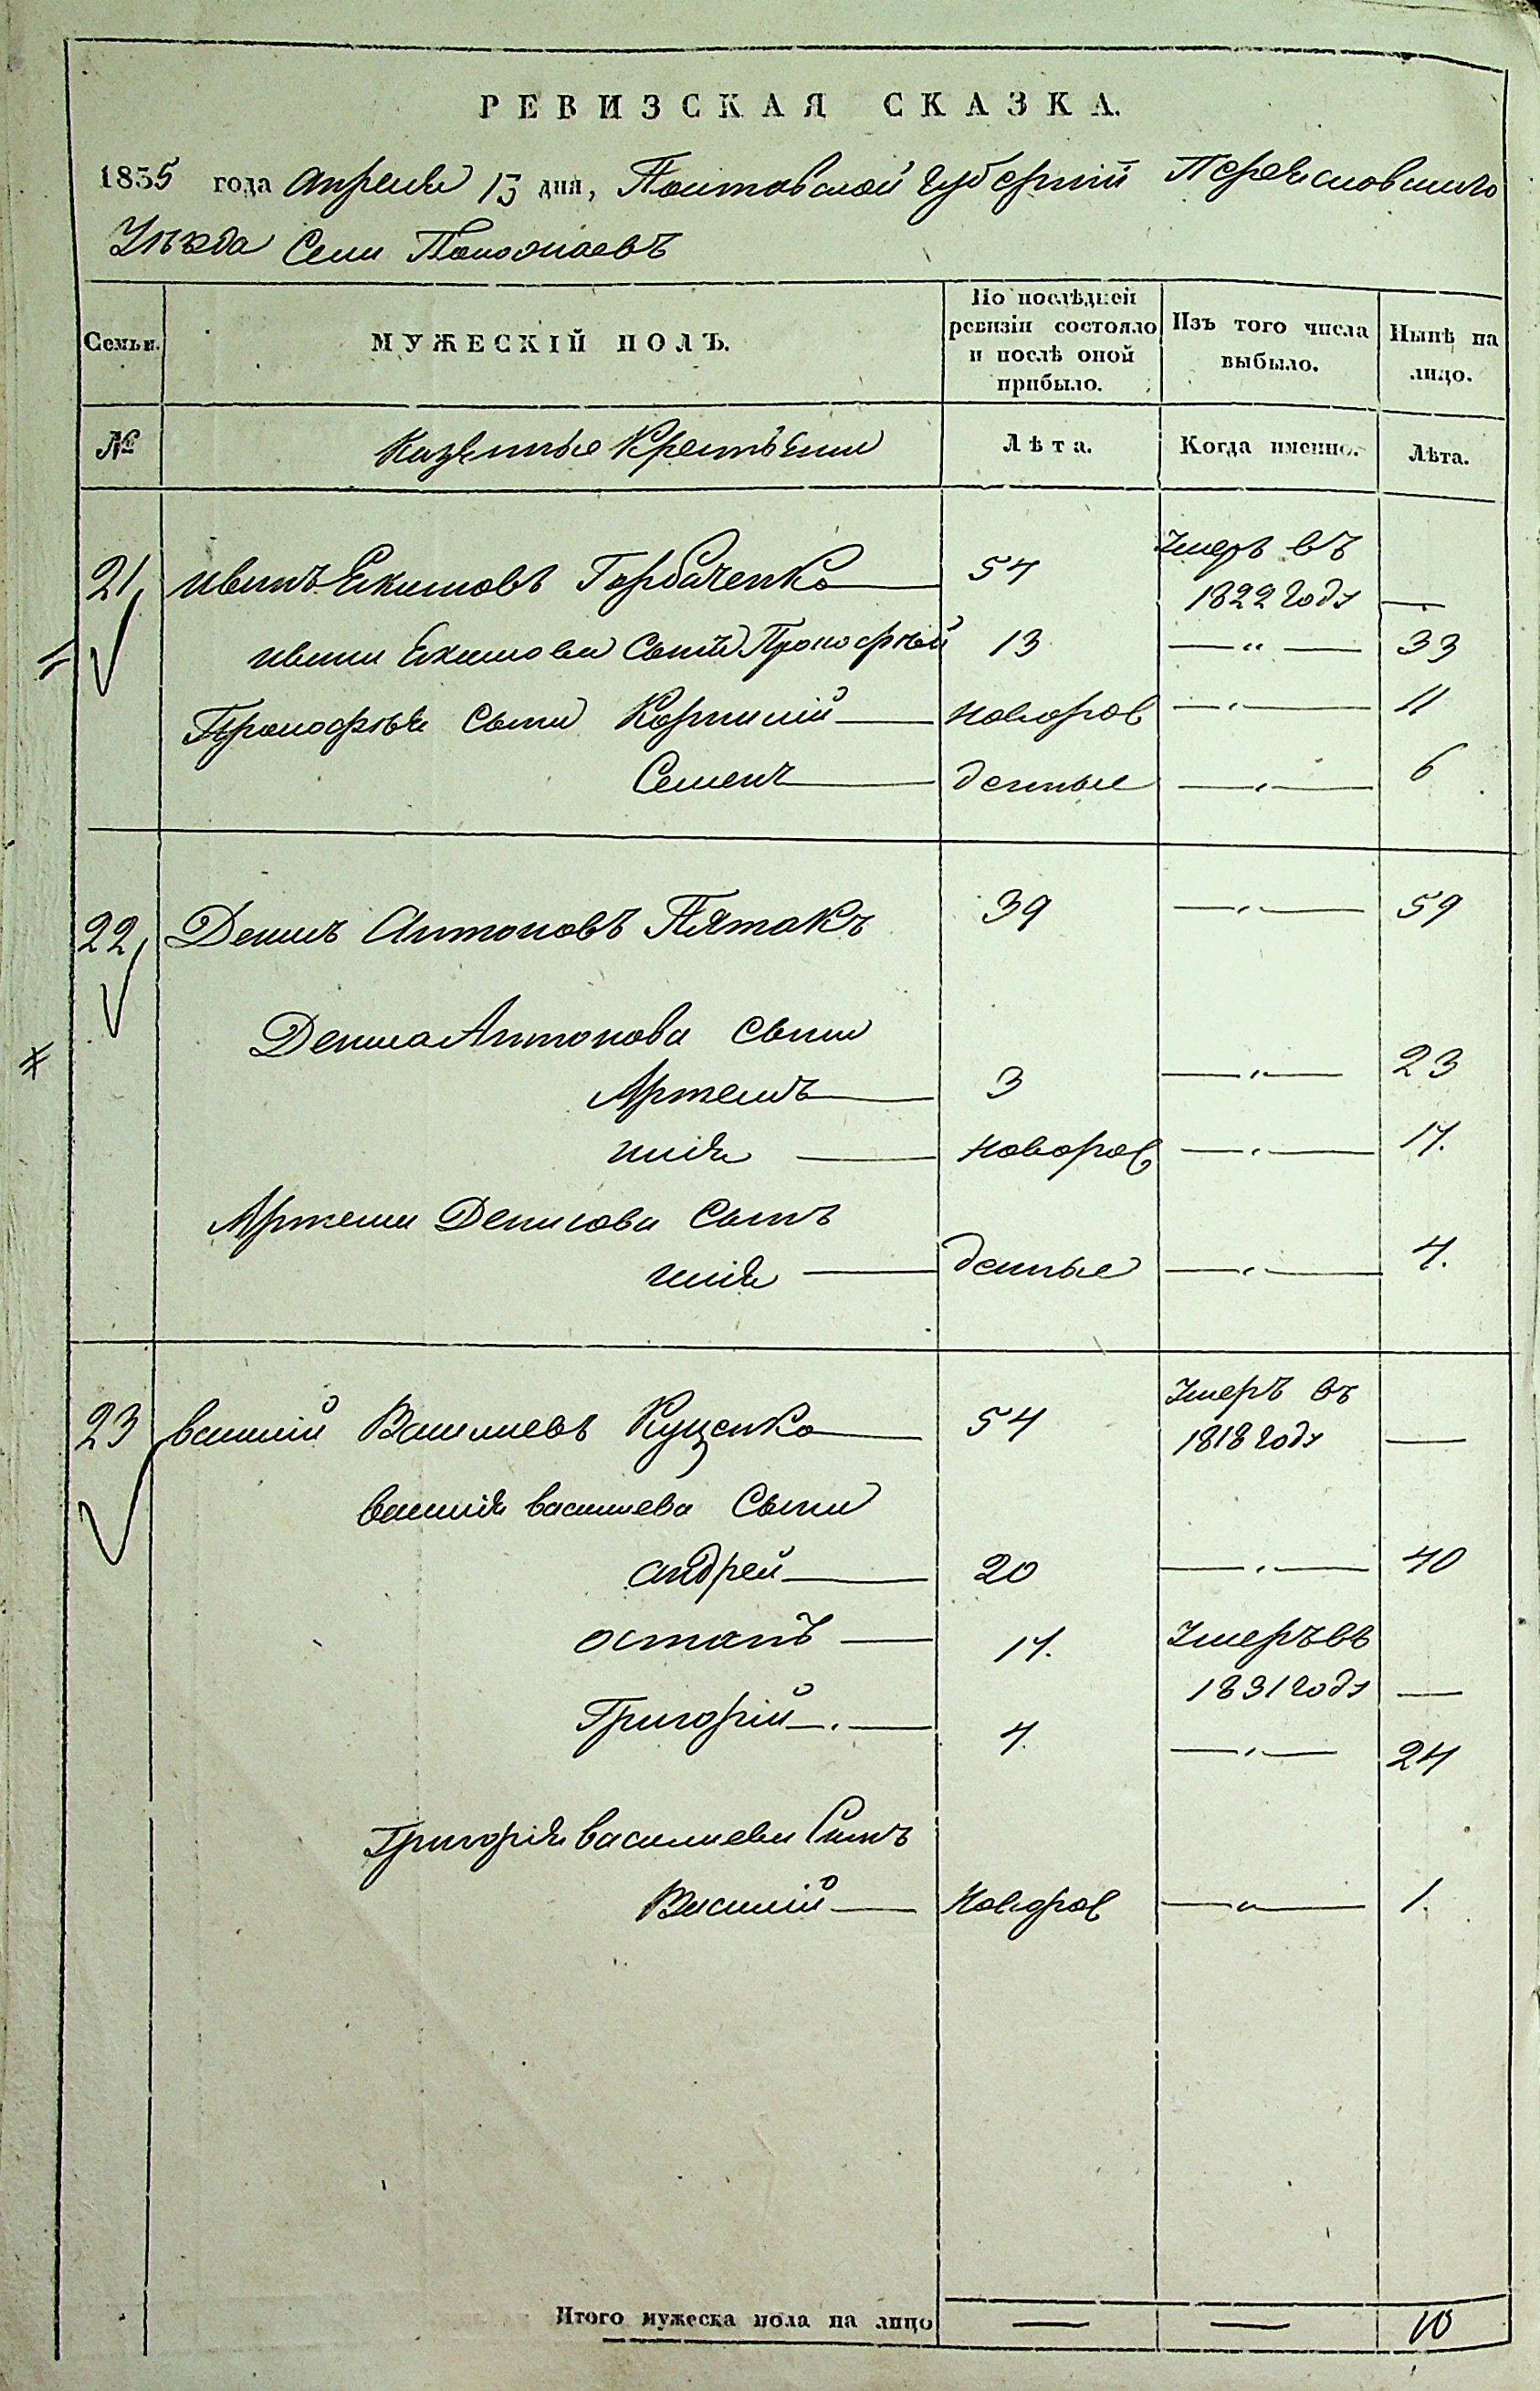 РЕВИЗСКАЯ СКАЗКА.
1835 года Апреля 13 дня, Полтавской Губернии Переясловскаго
Уѣзда Села
Семьи. МУЖЕСКІЙ ПОЛЪ. По послѣдней ревизіи состояло и послѣ оной прибыло. Изъ того числа выбыло. Нынѣ на лицо.
№ Казенные Крестьяни Лѣта. Когда именно. Лѣта.
21, иванъ Екимовъ Горбаченко 54 Умеръ въ
1822 году —
ивана Екимова Сынъ Прокофѣй 13 — „ — 33
Прокофѣя Сыни Корнилій новорож — „ — 11
Семенъ денные — „ — 6
22, Денисъ Антоновъ Пятакъ 39 — „ — 59
Дениса Антонова Сыни
Артемъ 3 — „ — 23
илія новорож — „ — 14.
Артема Денисова Сынъ
илія денные — „ — 4.
23 василій Василиевъ Куценко 54 Умеръ въ
1818 году —
василія василиева Сыни
андрей 20 — „ — 40
остапъ 14. Умеръ въ
1831 году —
Григорій 4. — „ — 24
Григорія василиева Сынъ
Василій Новорож — „ — 1.
Итого мужеска пола на лицо — — 10